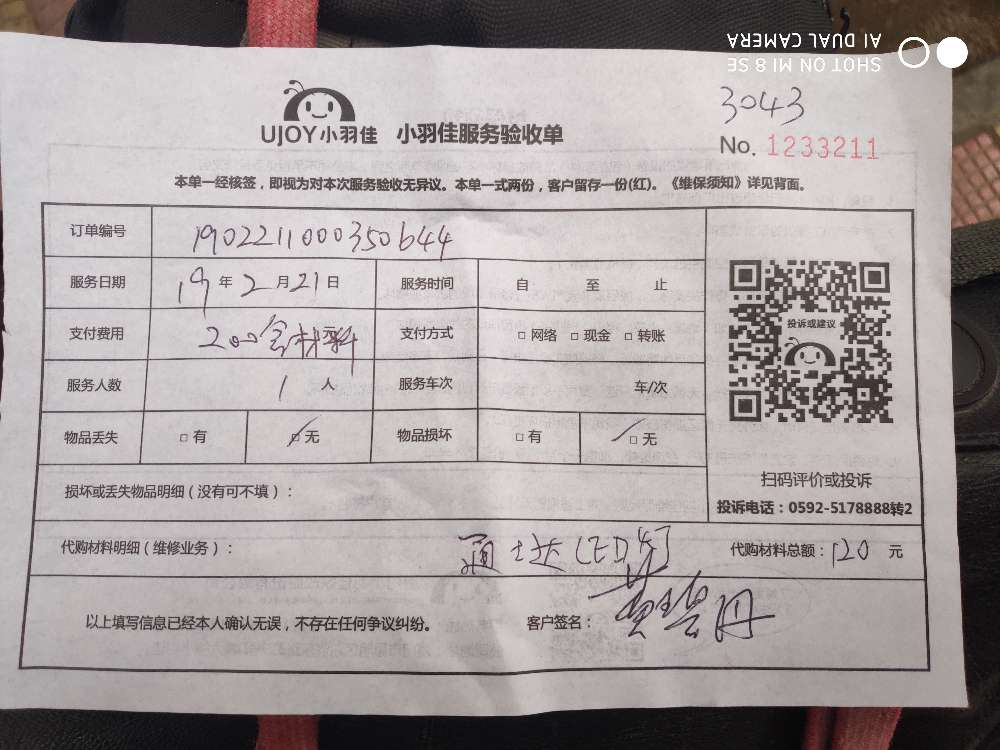 SHOT ON MI 8 SE
AI DUAL CAMERA
3043
UJOY小羽佳 小羽佳服务验收单
No. 1233211
本单一经核签，即视为对本次服务验收无异议。本单一式两份，客户留存一份(红)。《维保须知》详见背面。
订单编号 190221100035​0644
服务日期 19年2月21日 服务时间 自 至 止
支付费用 200含材料 支付方式 □ 网络 □ 现金 □ 转账
服务人数 1 人 服务车次 车/次
物品丢失 □ 有 □ 无 物品损坏 □ 有 □ 无
投诉或建议
扫码评价或投诉
投诉电话：0592-5178888转2
损坏或丢失物品明细（没有可不填）：
代购材料明细（维修业务）： LED灯 代购材料总额：120 元
以上填写信息已经本人确认无误，不存在任何争议纠纷。 客户签名：